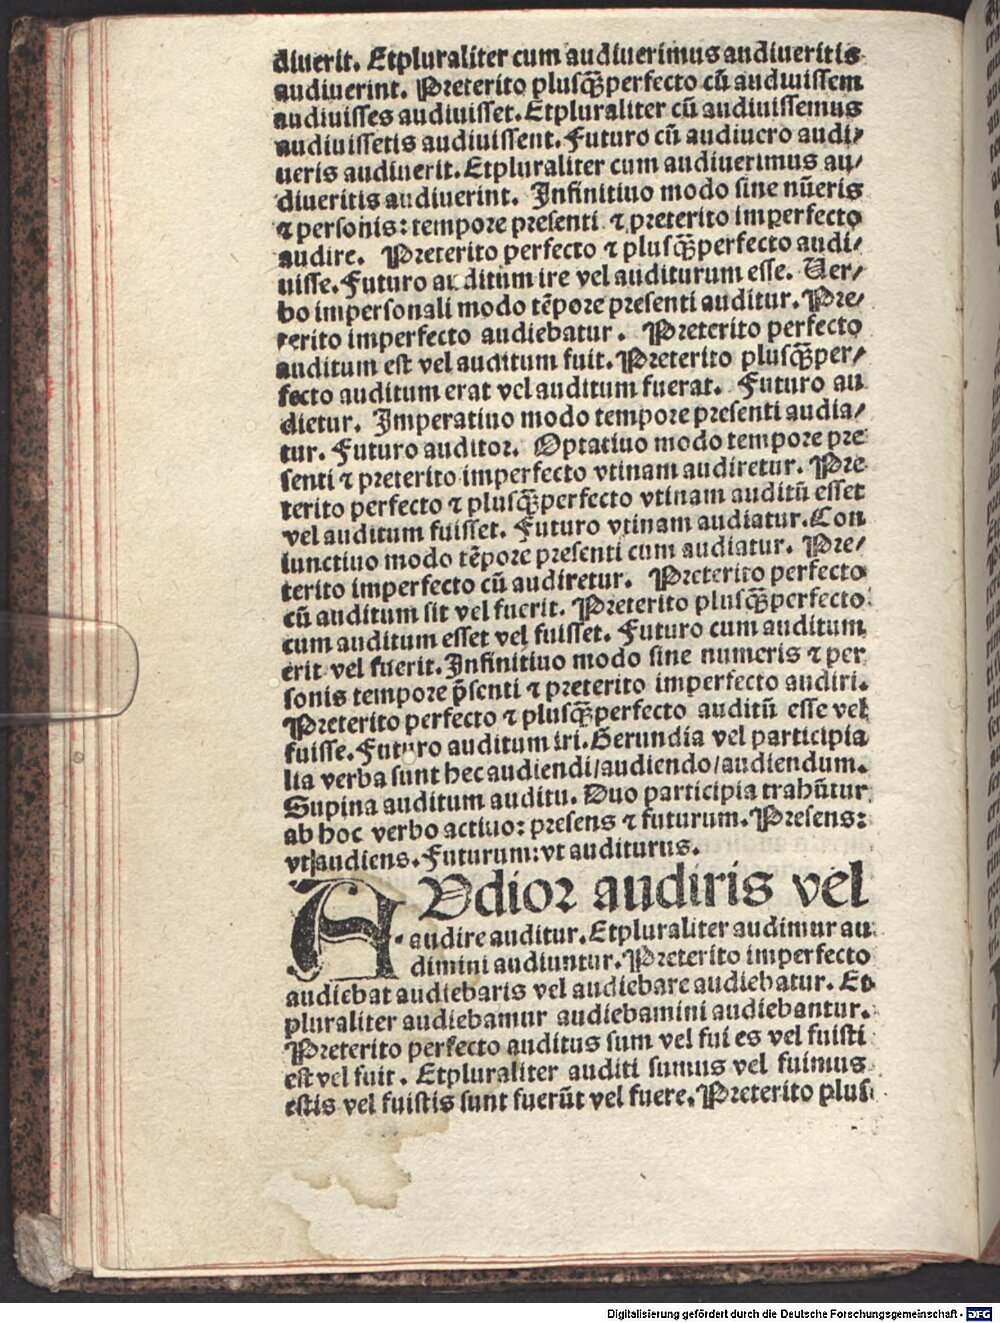 diuerit. Etpluraliter cum audiuerimus audiueritis
audiuerint. Preterito plusq̃ȝperfecto cū audiuissem
audiuisses audiuisset. Etpluraliter cū audiuissemus
audiuissetis audiuissent. Futuro cū audiuero audi/
ueris audiuerit. Etpluraliter cum audiuerimus au/
diueritis audiuerint. Infinitiuo modo sine nūeris
⁊ personis: tempore presenti ⁊ preterito imperfecto
audire. Preterito perfecto ⁊ plusq̃ȝperfecto audi/
uisse. Futuro auditum ire vel auditurum esse. Uer/
bo impersonali modo tēpore presenti auditur. Pre/
terito imperfecto audiebatur. Preterito perfecto
auditum est vel auditum fuit. Preterito plusq̃ȝper/
fecto auditum erat vel auditum fuerat. Futuro au
dietur. Imperatiuo modo tempore presenti audia/
tur. Futuro auditor. Optatiuo modo tempore pre
senti ⁊ preterito imperfecto vtinam audiretur. Pre
terito perfecto ⁊ plusq̃ȝperfecto vtinam auditū esset
vel auditum fuisset. Futuro vtinam audiatur. Con
iunctiuo modo tēpore presenti cum audiatur. Pre/
terito imperfecto cū audiretur. Preterito perfecto
cū auditum sit vel fuerit. Preterito plusq̃ȝperfecto
cum auditum esset vel fuisset. Futuro cum auditum
erit vel fuerit. Infinitiuo modo sine numeris ⁊ per
sonis tempore p̄senti ⁊ preterito imperfecto audiri.
Preterito perfecto ⁊ plusq̃ȝperfecto auditū esse vel
fuisse. Futuro auditum iri. Gerundia vel participia
lia verba sunt hec audiendi/audiendo/audiendum.
Supina auditum auditu. Duo participia trahūtur
ab hoc verbo actiuo: presens ⁊ futurum. Presens:
vt audiens. Futurum: vt auditurus.
AUdior audiris vel
audire auditur. Etpluraliter audimur au
dimini audiuntur. Preterito imperfecto
audiebat audiebaris vel audiebare audiebatur. Et
pluraliter audiebamur audiebamini audiebantur.
Preterito perfecto auditus sum vel fui es vel fuisti
est vel fuit. Etpluraliter auditi sumus vel fuimus
estis vel fuistis sunt fuerūt vel fuere. Preterito plus
Digitalisierung gefördert durch die Deutsche Forschungsgemeinschaft - DFG